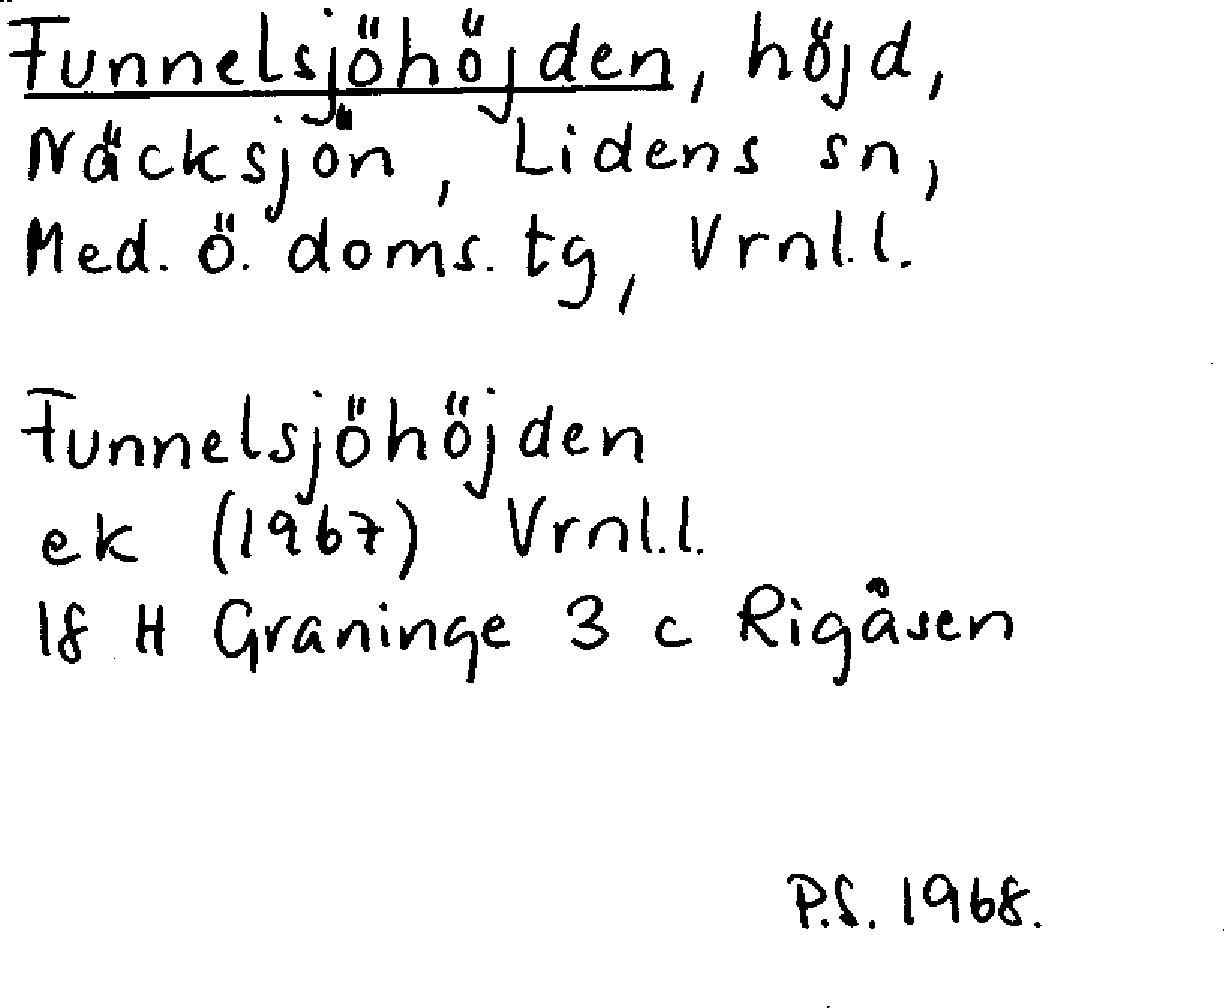 Funnelsjöhöjden, höjd,
Näcksjön, Lidens sn,
Med. ö. doms. tg, Vrnl.l.
Funnelsjöhöjden
ek (1967) Vrnl.l.
18 H Graninge 3 c Rigåsen
P.S. 1968.